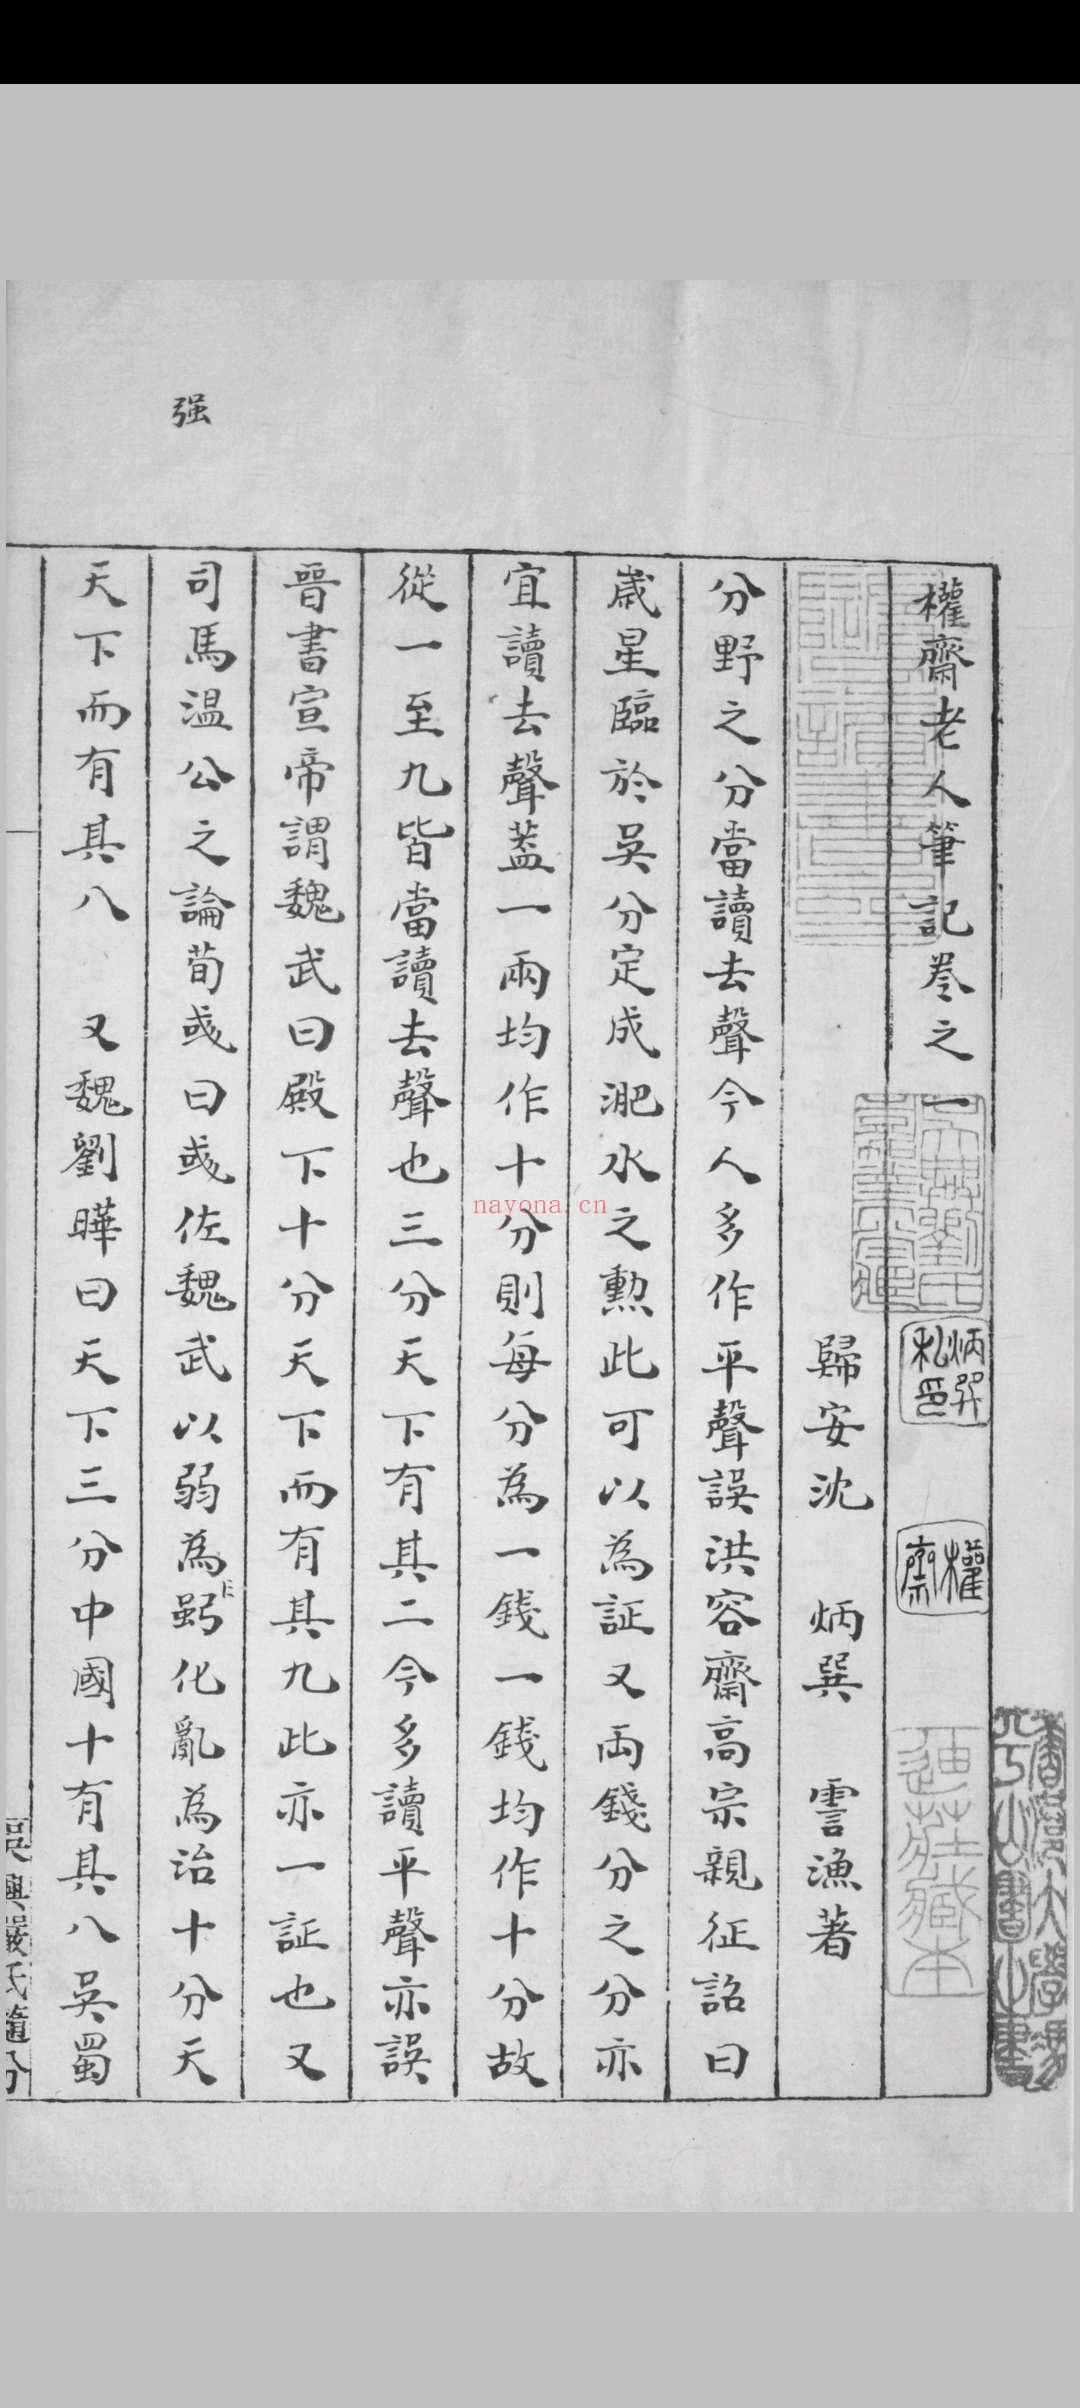 權齋老人筆記卷之一
歸安沈 炳巽 䨓漁著
分野之分當讀去聲今人多作平聲誤洪容齋高宗親征詔曰
歲星臨於吳分定成淝水之勲此可以為証又兩錢分之分亦
宜讀去聲葢一兩均作十分則每分為一錢一錢均作十分故
從一至九皆當讀去聲也三分天下有其二今多讀平聲亦誤
晉書宣帝謂魏武曰殿下十分天下而有其九此亦一証也又
司馬温公之論荀彧曰彧佐魏武以弱為鄂化亂為治十分天
天下而有其八 又魏劉曄曰天下三分中國十有其八吳蜀
强
炳巽
私印
權
齋
吳興劉氏
嘉業堂藏
迪莊藏本
香港大學馮
平山圖書之書
吳興嚴氏隨分
nayona.cn